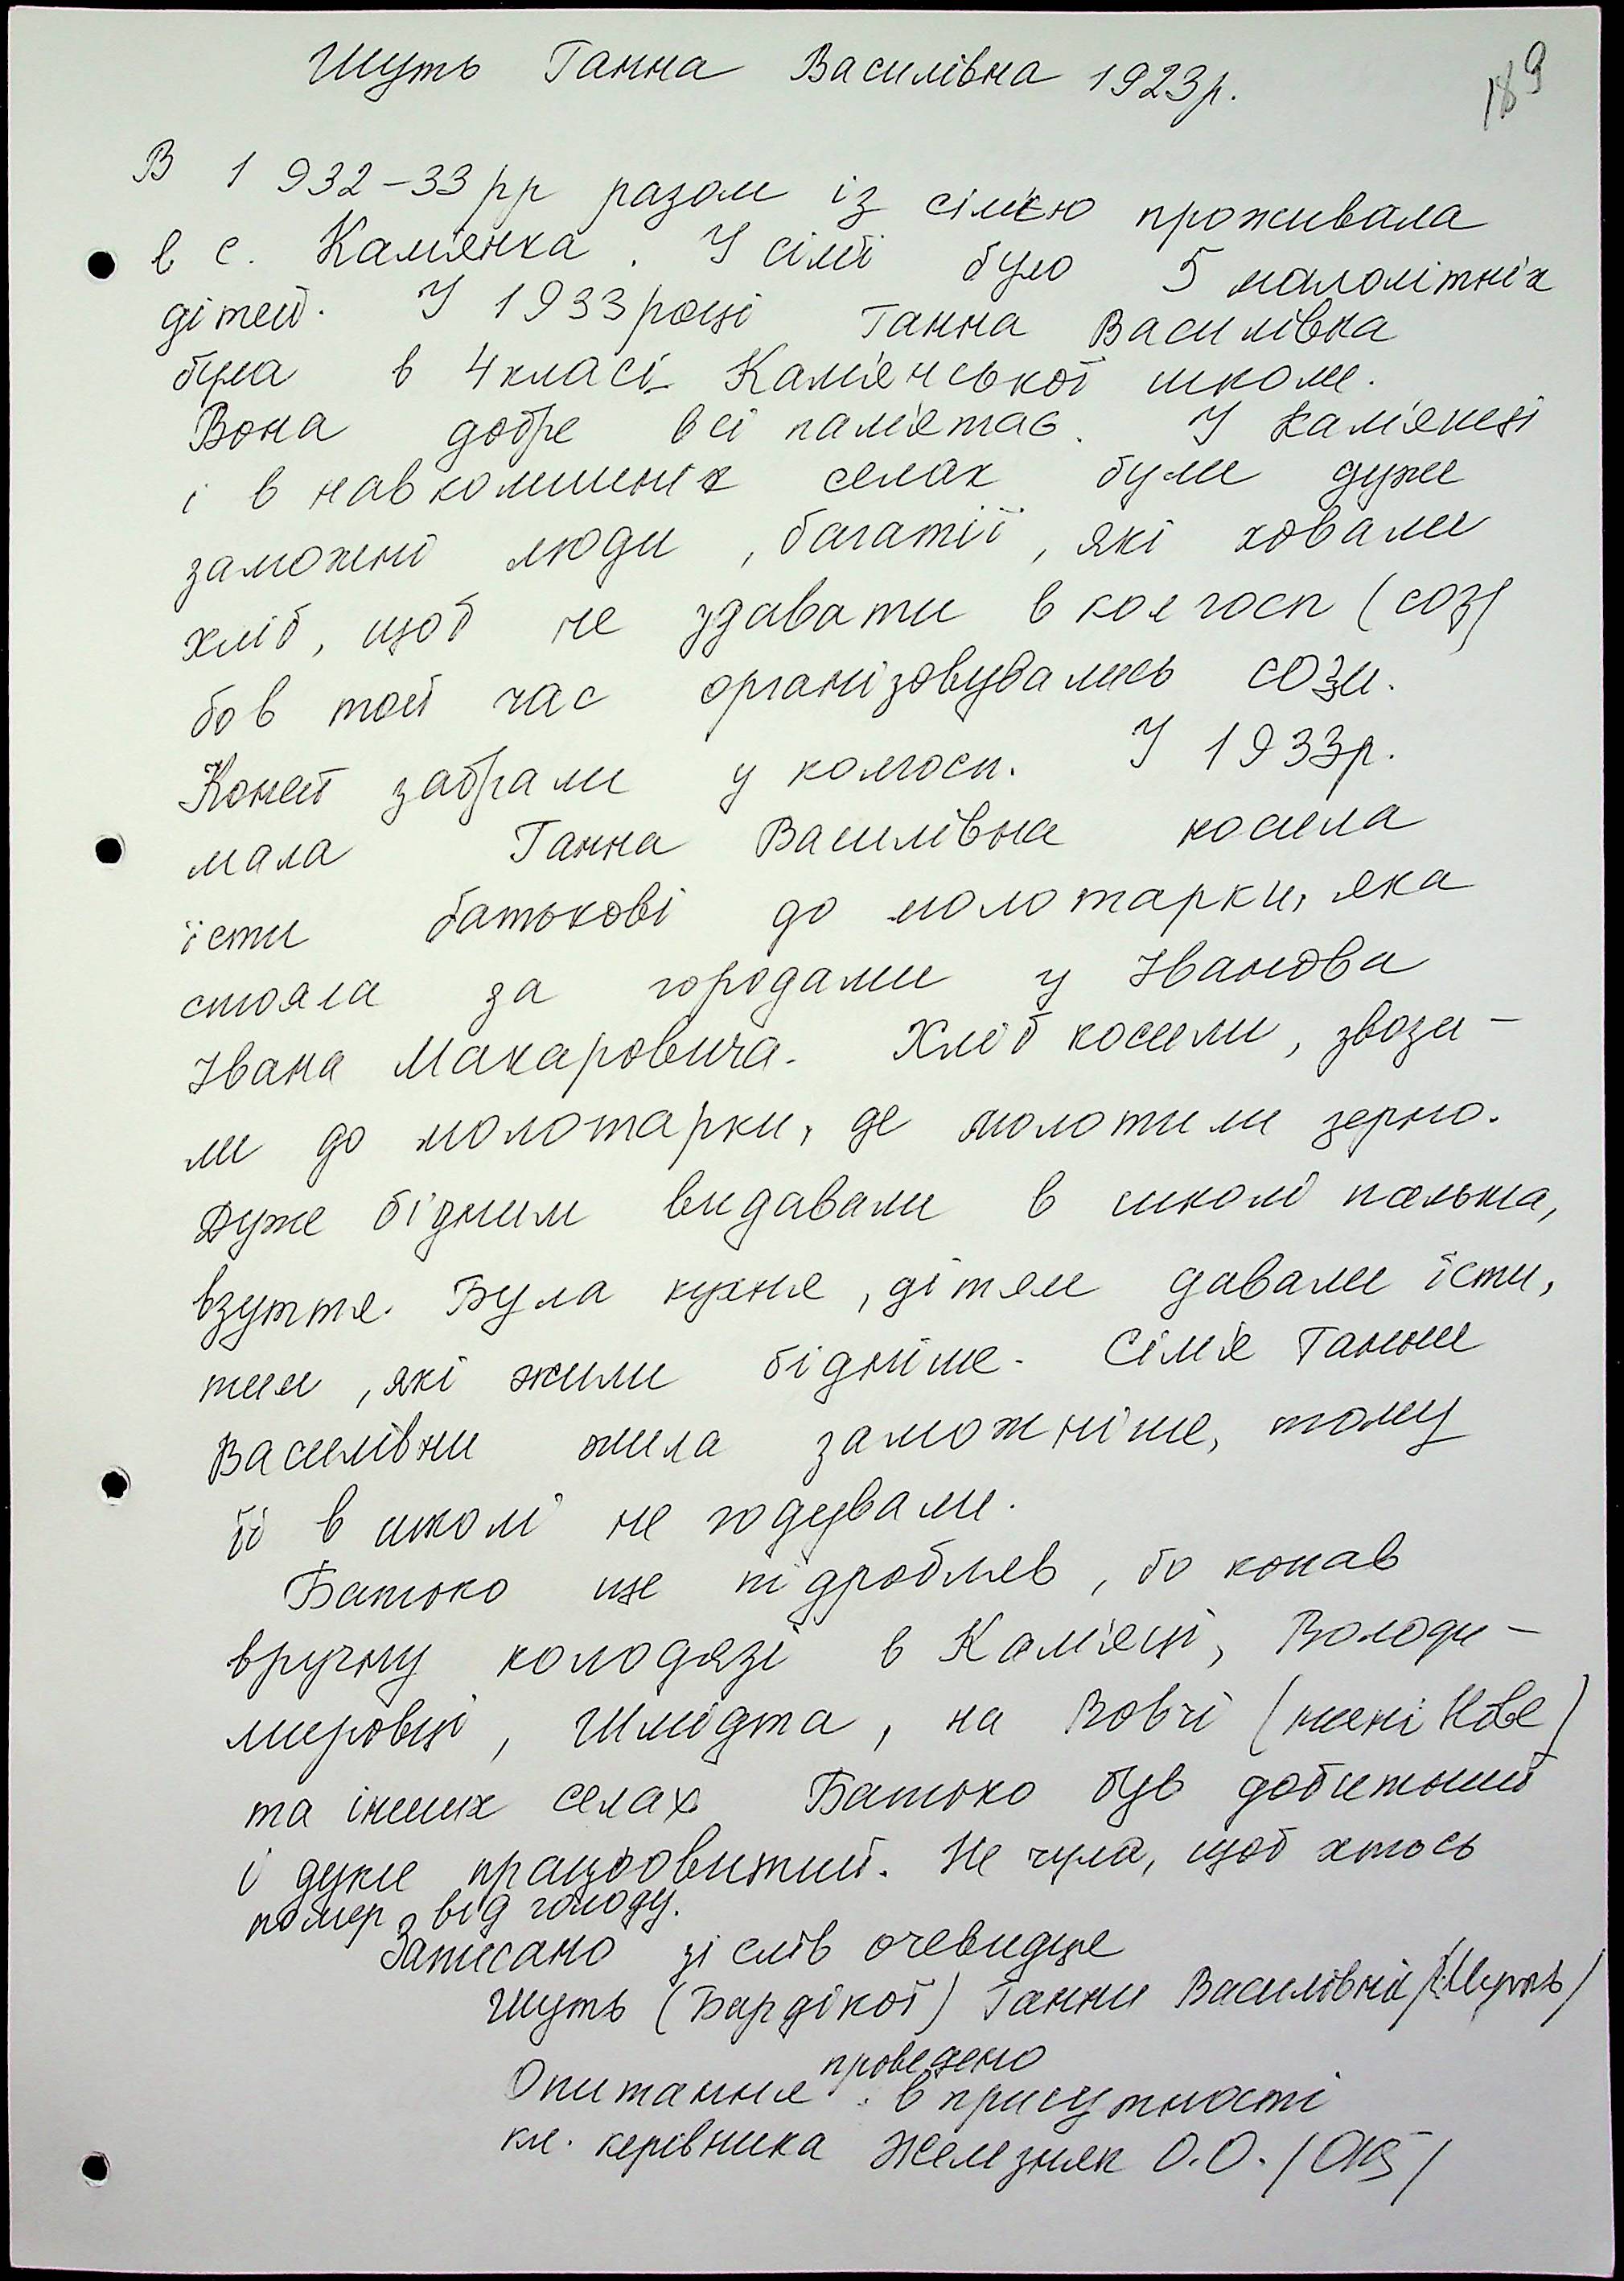 Шуть Ганна Василівна 1923р.
189
В 1932-33рр разом із сім'єю проживала
в с. Кам'янка. У сім'ї було 5 малолітніх
дітей. У 1933році Ганна Василівна
була в 4класі Кам'янської школи.
Вона добре всі пам'ятає. У Кам'янці
і в навколишніх селах були дуже
заможні люди, багатії, які ховали
хліб, щоб не здавати в колгосп (соз)
бо в той час організовувались сози.
Коней забрали у колгосп. У 1933р.
мала Ганна Василівна носила
їсти батькові до молотарки, яка
стояла за городами у Іванова
Івана Макаровича. Хліб косили, звози-
ли до молотарки, де молотили зерно.
Дуже бідним видавали в школі пальта,
взуття. Була кухня, дітям давали їсти,
тим, які жили бідніше. Сім'я Ганни
Василівни жила заможніше, тому
її в школі не годували.
Батько ще підробляв, бо копав
вручну колодязі в Кам'янці, Володи-
мирівці, Шмідта, на Вовчі (нині Нове)
та інших селах Батько був добитний
і дуже працьовитий. Не чула, щоб хтось
помер від голоду.
Записано зі слів очевидця
Шуть (Бардікої) Ганни Василівни /Шуть/
Опитання проведено в присутності
кл. керівника Железняк О.О. /